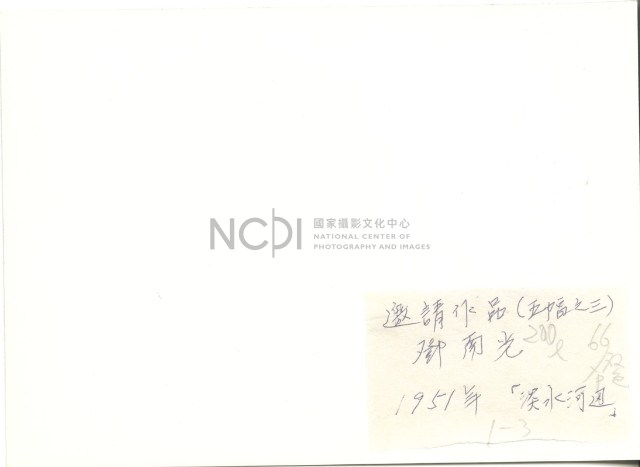 NCPI 國家攝影文化中心
NATIONAL CENTER OF
PHOTOGRAPHY AND IMAGES
邀請作品(五幅之三)
鄧南光 200
66
1951年「淡水河邊」
1-3